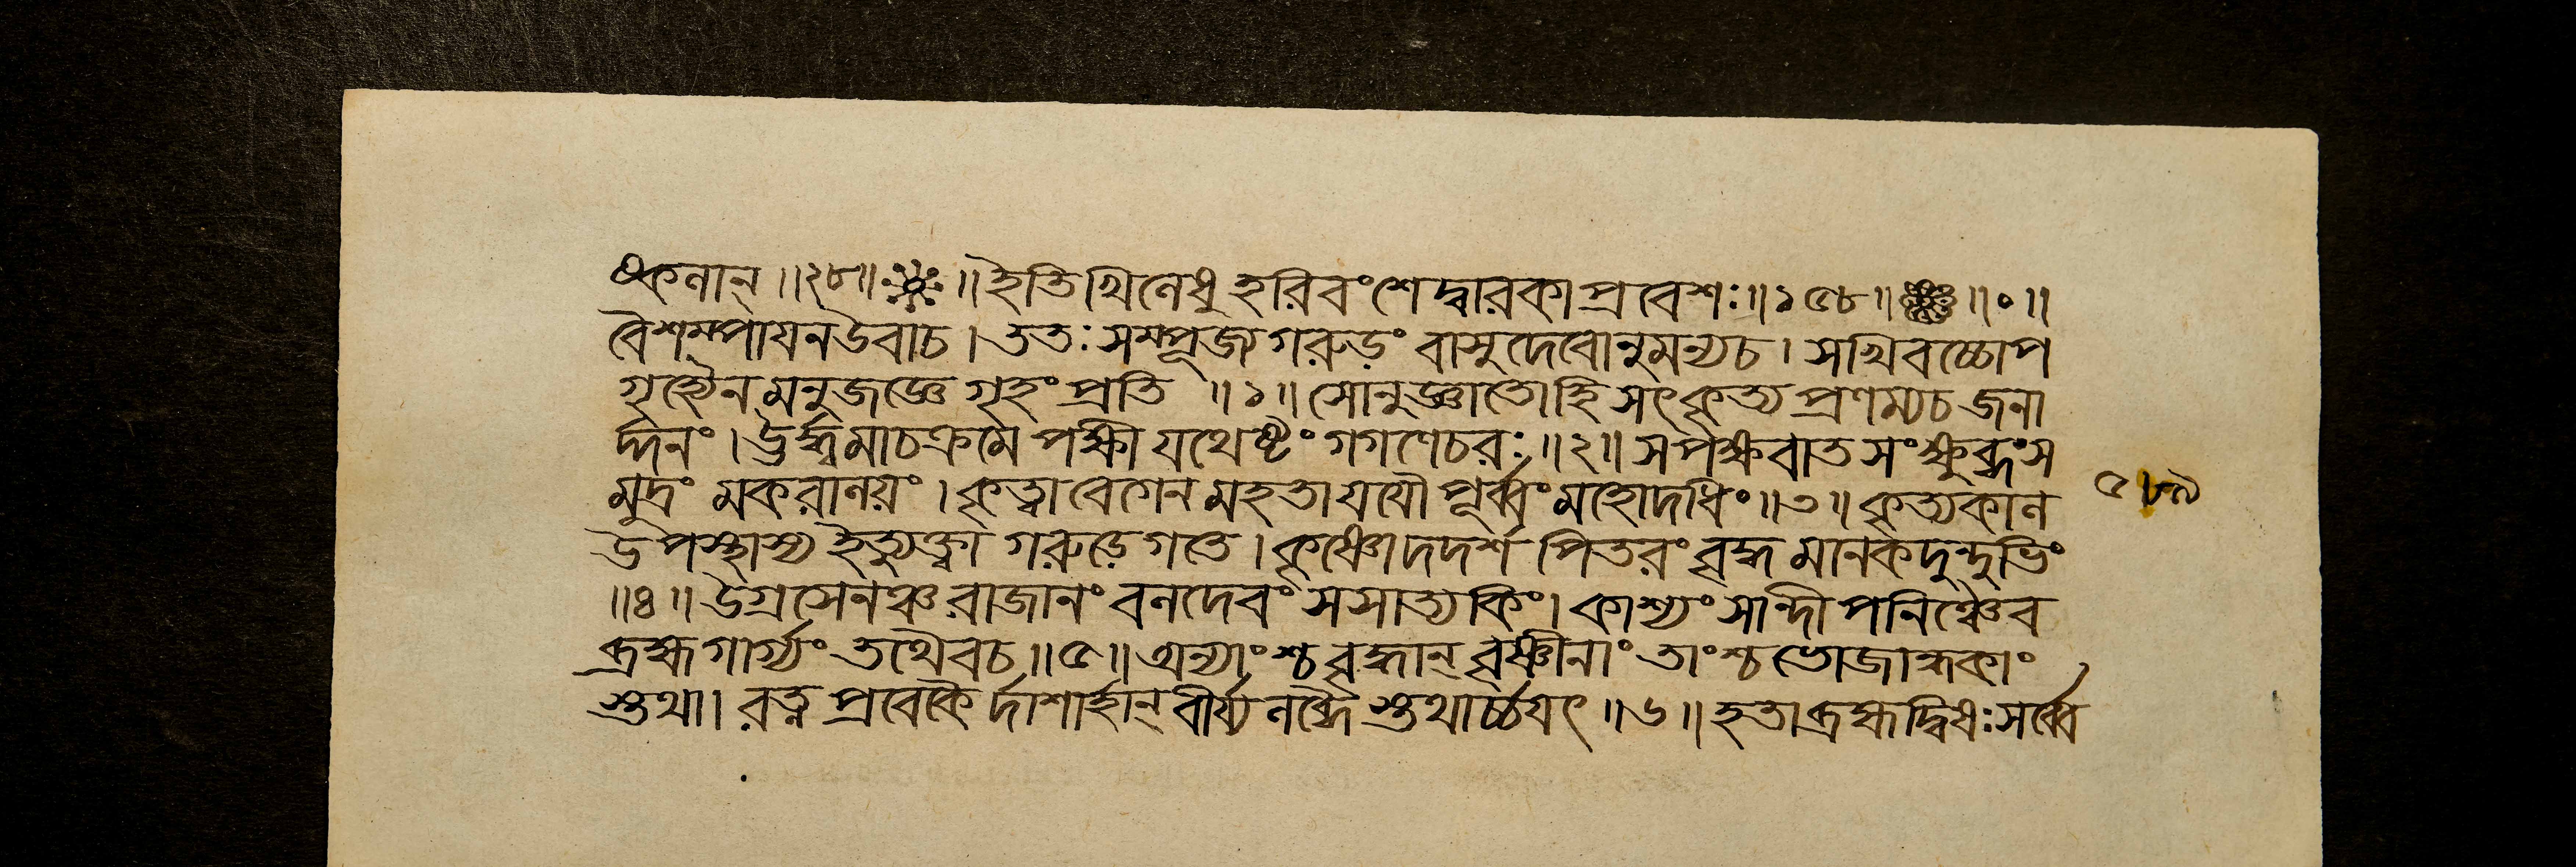 ৎকনান্ ॥২৮॥ ॥ ইতি খিলেষু হরিবংশে দ্বারকাপ্রবেশঃ ॥১৫৮॥ ॥०॥
বৈশম্পাযন উবাচ । ততঃ সম্পূজ্য গরুড়ং বাসুদেবোনুমন্যচ । সখিবচ্চোপ
গৃহ্যৈন মনুজজ্ঞে গৃহং প্রতি ॥১॥ সোনুজ্ঞাতো হি সৎকৃত্য প্রণম্যচ জনা
র্দ্দনং । ঊর্দ্ধ্বমাচক্রমে পক্ষী যথেষ্টং গগণেচরঃ ॥২॥ সপক্ষবাত সংক্ষুব্ধংস
মুদ্রং মকরালয়ং । কৃত্বা বেগেন মহতা যযৌ পূর্ব্বং মহোদধিং ॥৩॥ কৃত্যকাল
উপস্থাস্য ইত্যুক্ত্বা গরুড়ে গতে । কৃষ্ণো দদর্শ পিতরং বৃদ্ধ মানকদুন্দুভিং
॥৪॥ উগ্রসেনঞ্চ রাজানং বলদেবং সসাত্যকিং । কাশ্যং সান্দীপনিঞ্চৈব
ব্রহ্মগার্গ্যং তথৈবচ ॥৫॥ অন্যাংশ্চ বৃদ্ধান্ বৃষ্ণীনাং তাংশ্চ ভোজান্ধকাং
স্তথা । রত্ন প্রবেকৈ র্দাশার্হান্ বীর্য্য লব্ধৈ স্তথার্চ্চযৎ ॥৬॥ হতা ব্রহ্মদ্বিষঃ সর্ব্বে
৫৮৯